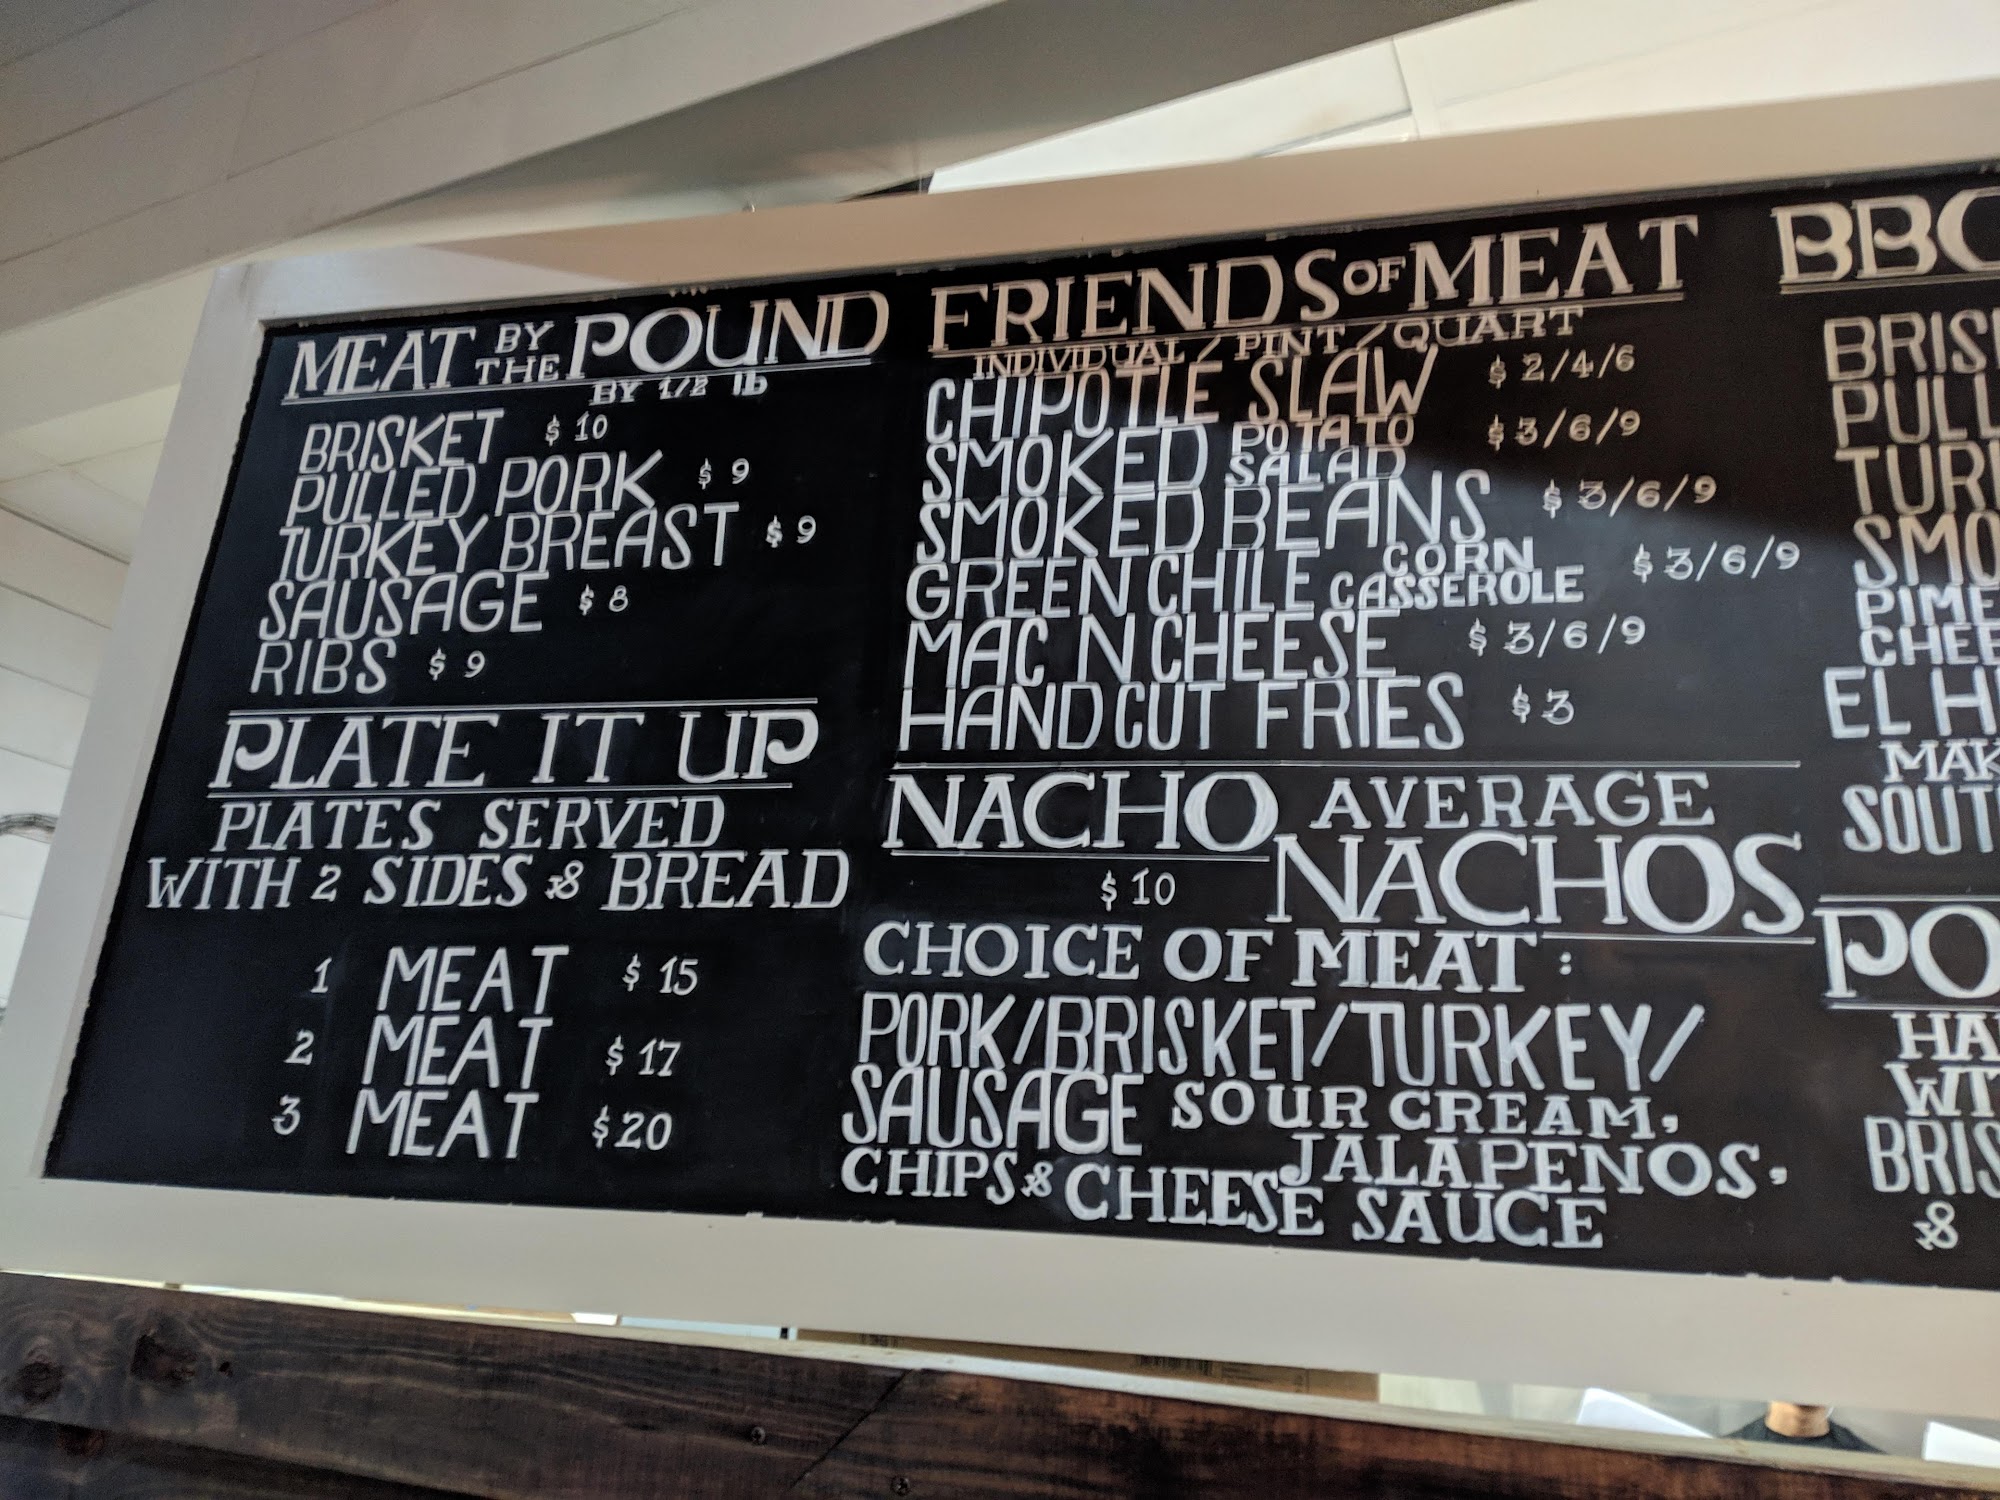 MEAT BY THE POUND
BY 1/2 lb
BRISKET $10
PULLED PORK $9
TURKEY BREAST $9
SAUSAGE $8
RIBS $9
PLATE IT UP
PLATES SERVED
WITH 2 SIDES & BREAD
1 MEAT $15
2 MEAT $17
3 MEAT $20
FRIENDS OF MEAT
INDIVIDUAL / PINT / QUART
CHIPOTLE SLAW $2/4/6
SMOKED POTATO SALAD $3/6/9
SMOKED BEANS $3/6/9
GREEN CHILE CORN CASSEROLE $3/6/9
MAC N CHEESE $3/6/9
HAND CUT FRIES $3
NACHO AVERAGE
$10 NACHOS
CHOICE OF MEAT:
PORK/BRISKET/TURKEY/
SAUSAGE SOUR CREAM,
JALAPENOS,
CHIPS & CHEESE SAUCE
BBQ
BRIS
PULL
TUR
SMO
PIME
CHEE
EL H
MAK
SOUT
PO
HA
WIT
BRIS
&